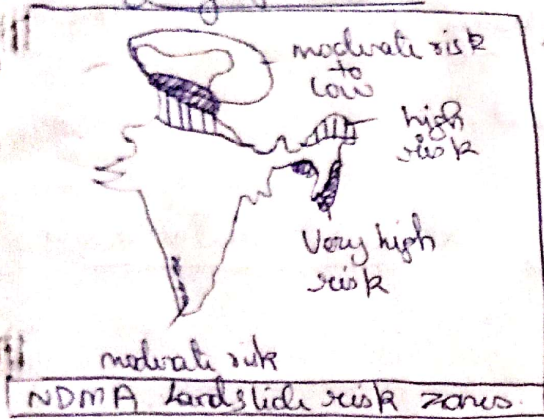 moderate risk
to
low
high
risk
Very high
risk
moderate risk
NDMA Landslide risk zones